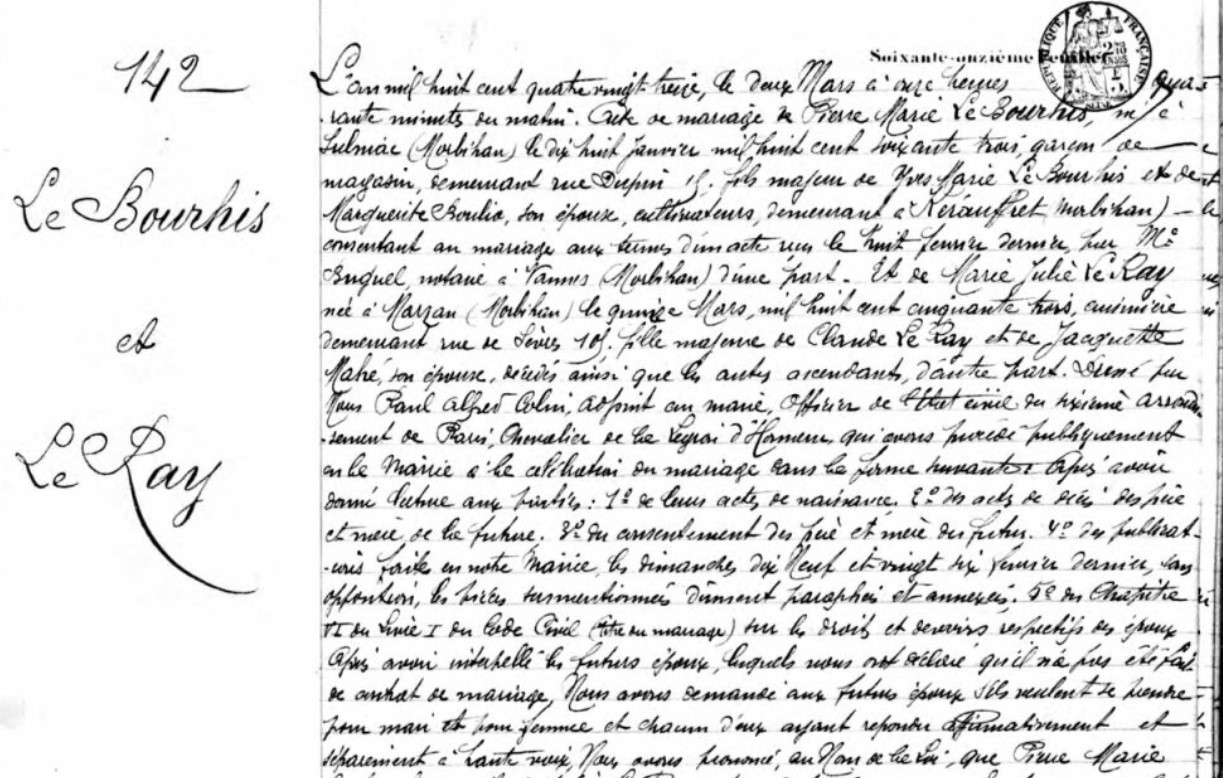 142
Le Bourhis
et
Le Ray
Soixante-onzième Feuillet
RÉPUBLIQUE FRANÇAISE
SEINE
L'an mil huit cent quatre vingt treize, le deux Mars à onze heures qua-
-rante minutes du matin. Acte de mariage de Pierre Marie Le Bourhis, né à
Sulniac (Morbihan) le dix huit Janvier mil huit cent soixante trois, garçon de
magasin, demeurant rue Dupin 15. fils majeur de Yves Marie Le Bourhis et de
Marguerite Boulio, son épouse, cultivateurs, demeurant à Kerauffret Morbihan) –
consentant au mariage aux termes d'un acte reçu le huit fevrier dernier, par Me
notaire à Vannes (Morbihan) d'une part. – Et de Marie Julie Le Ray
née à Marzan (Morbihan) le quinze Mars, mil huit cent cinquante trois, cuisinière
demeurant rue de Sèvres 105. fille majeure de Claude Le Ray et de Jacquette
Mahé, son épouse, décédés ainsi que les autres ascendants, d'autre part. Dressé par
Nous Paul Alfred Colin, adjoint au maire, Officier de l'Etat civil du sixième arrondis
-sement de Paris, Chevalier de la Légion d'Honneur, qui avons procédé publiquement
en la Mairie à la célébration du mariage dans la forme suivante : Après avoir
donné lecture aux parties : 1° de leurs actes de naissance. 2° des actes de décès des père
et mère de la future. 3° du consentement des père et mère du futur. 4° des publicat-
-ions faites en notre Mairie, les dimanches dix Neuf et vingt six fevrier dernier, sans
opposition, les pièces susmentionnées dûment paraphées et annexées. 5° du Chapitre
VI du Livre I du Code Civil (titre du mariage) sur les droits et devoirs respectifs des époux
Après avoir interpellé les futurs époux, lesquels nous ont déclaré qu'il n'a pas été fait
de contrat de mariage, Nous avons demandé aux futurs époux s'ils veulent se prendre
pour mari et pour femme et chacun d'eux ayant répondu affirmativement et
séparément à haute voix, Nous avons prononcé, au Nom de la Loi, que Pierre Marie